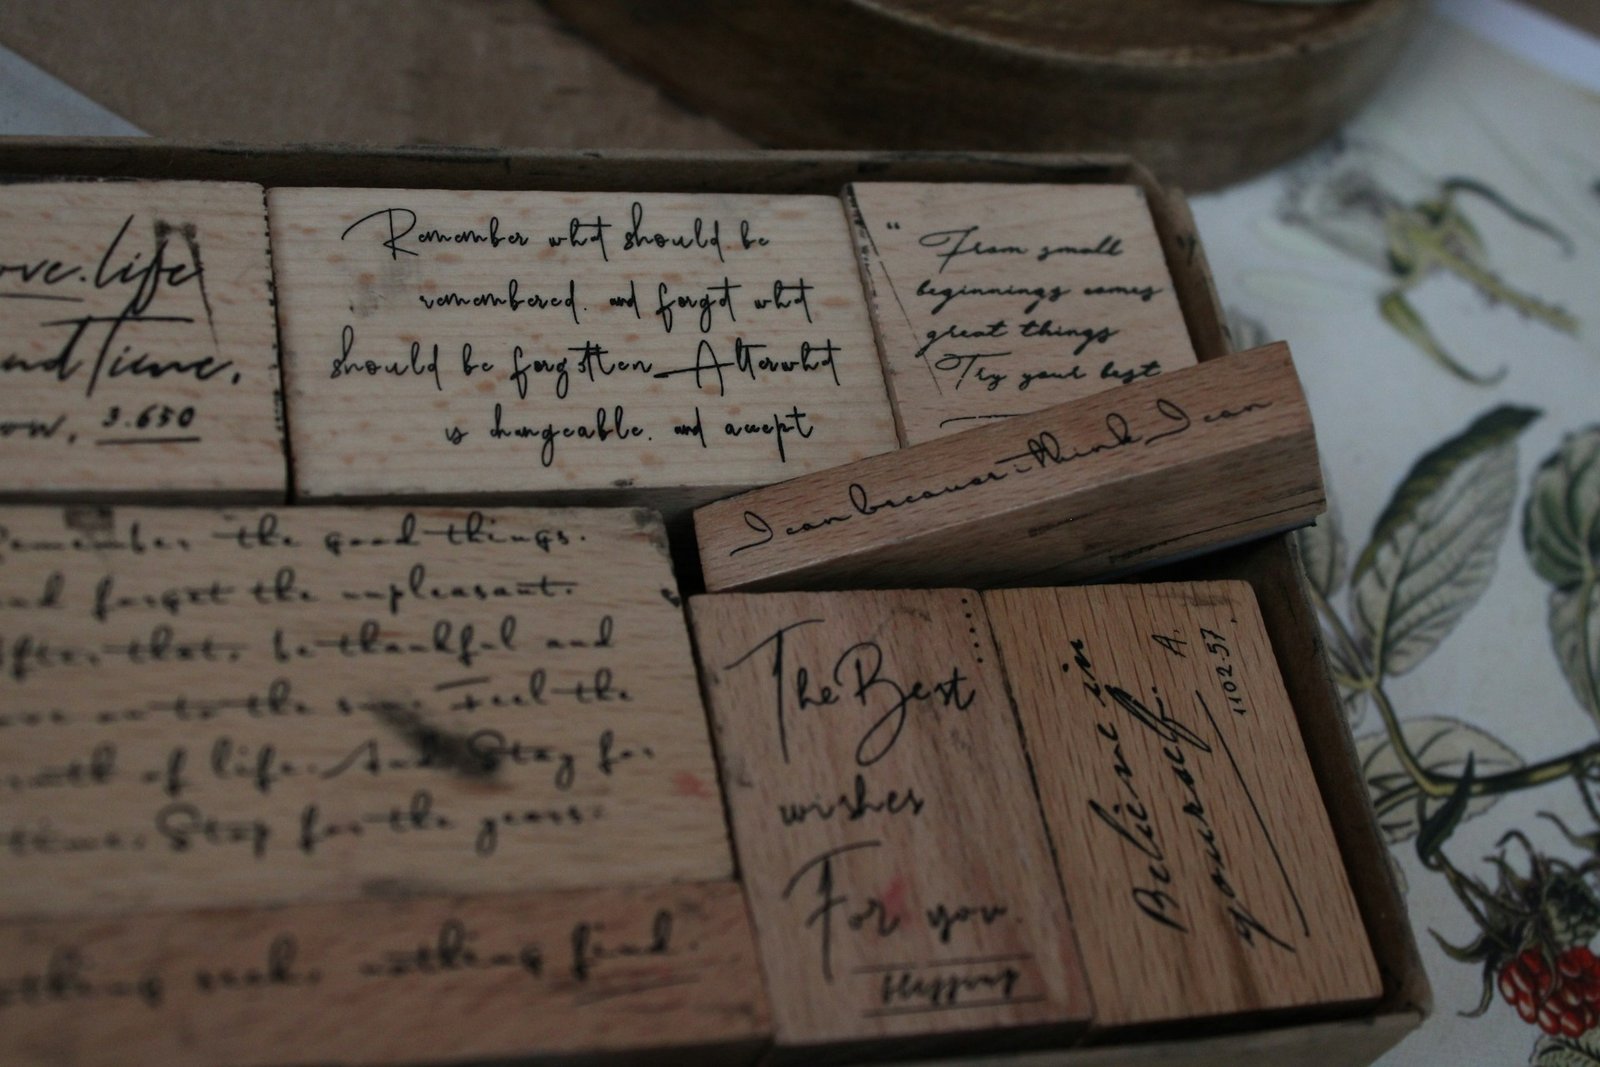 ove.life
nd Time,
ow, 3.650
Remember what should be
remembered. and forget what
should be forgotten_Alterwhat
is changeable. and accept
"From small
beginnings comes
great things
Try your best
"
I can because i think I can
Remember the good things.
nd forget the unpleasant.
After that, be thankful and
to the Feel the
of life. And Stay for
time. Stay for the years.
thing seek, nothing find.
The Best
wishes
For you.
blessing
Believe in
yourself.
A.
1102-57.